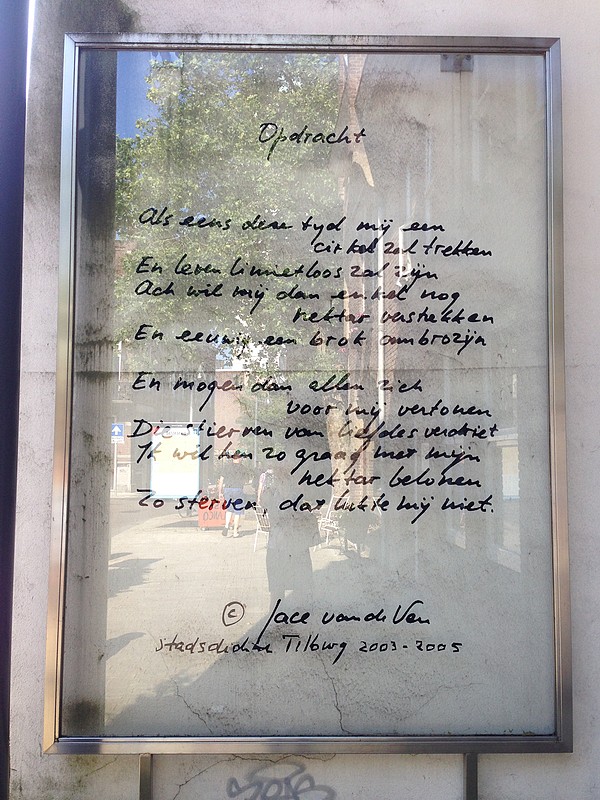 Opdracht
Als eens deze tyd mij een
cirkel zal trekken
En leven limietloos zal zijn
Ach wil mij dan enkel nog
nektar verstrekken
En eeuwig een brok ambrozijn
En mogen dan allen zich
voor mij vertonen
Die stierven van liefdesverdriet
Ik wil hen zo graag met mijn
nektar belonen
Zo sterven, dat lukte mij niet.
© Jace van de Ven
stadsdichter Tilburg 2003-2005